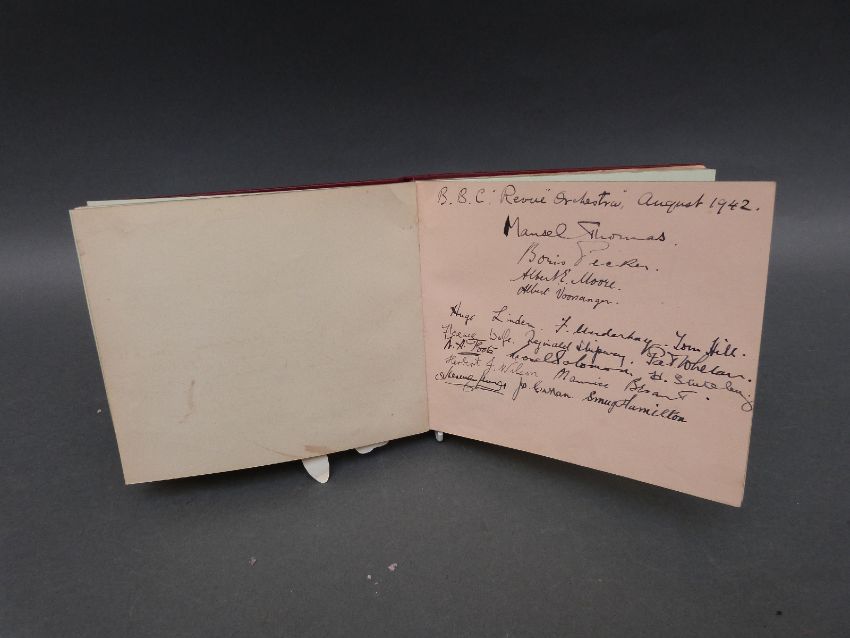 B.B.C. "Revue Orchestra", August 1942.
Mansel Thomas.
Boris Pecker.
Albert E. Moore.
Albert Voorsanger.
Hugo Linden. F. Underhay. Tom Hill.
Reginald Shipway. Pat Whelan.
A. A. Poole Solomon H. Stuteley
Herbert J. Wilson Maurice Besant.
Jo. Smug Hamilton